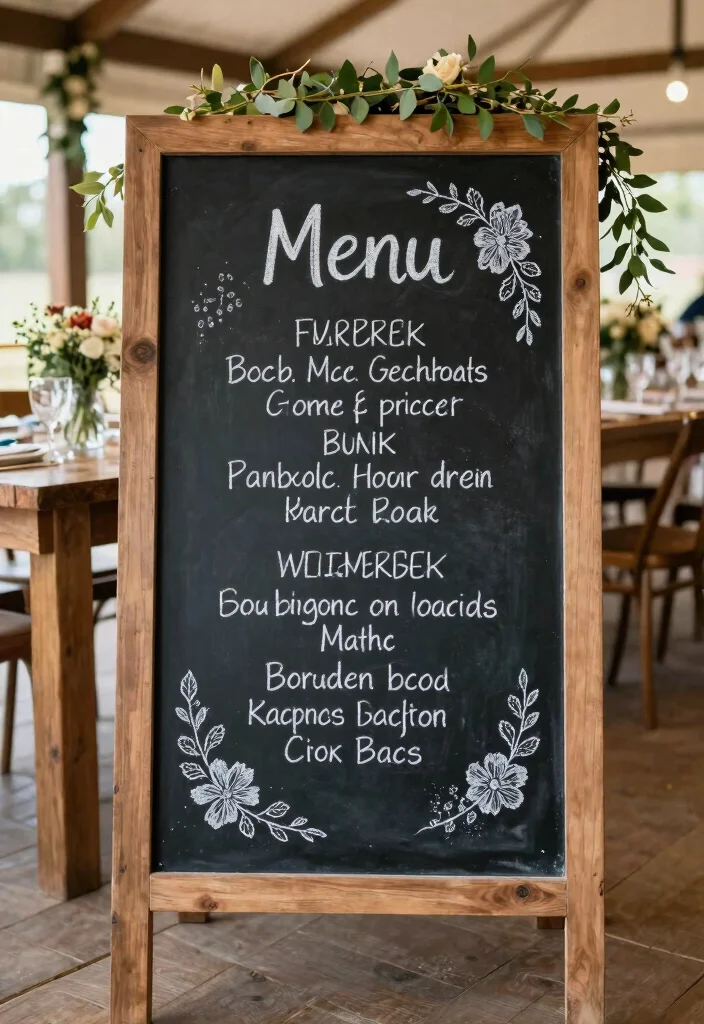 Menu
FURBREK
Bocb. Mcc. Gechtoats
Gome & priccer
BUNIK
Panbcolc. Hour drein
Karct Roak
Bou bigonc on loacids
Mathc
Boruden bcod
Kacpncs Bacfton
Ciok Bacs